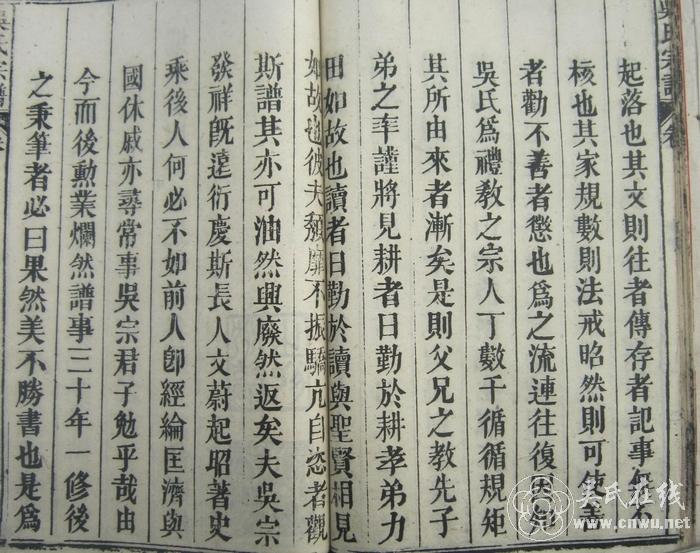 吳氏宗譜 卷
起落也其文則往者傳存者記事無不
核也其家規數則法戒昭然則可使善
者勸不善者懲也為之流連往復因知
吳氏為禮教之宗人丁數千循循規矩
其所由來者漸矣是則父兄之教先子
弟之率謹將見耕者日勤於耕孝弟力
田如故也讀者日勤於讀與聖賢相見
如故也彼夫頹靡不振驕亢自恣者觀
斯譜其亦可油然興廢然返矣夫吳宗
發祥旣遠衍慶斯長人文蔚起昭著史
乘後人何必不如前人卽經綸匡濟與
國休戚亦尋常事吳宗君子勉乎哉由
今而後勳業爛然譜事三十年一修後
之秉筆者必曰果然美不勝書也是為
吳氏宗譜 卷
吴氏在线
www.cnwu.net